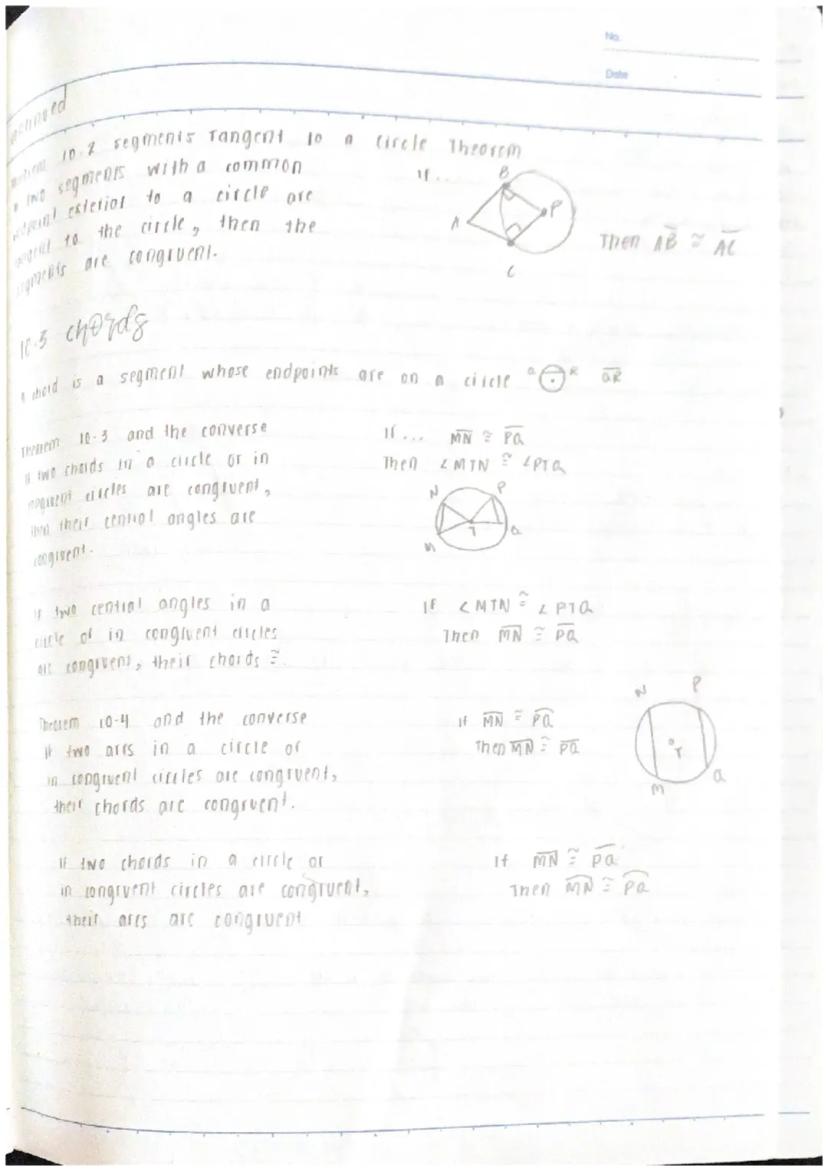 No.
Date
10-2 segments Tangent to a circle Theorem
two segments with a common
exterior to a circle are
to the circle, then the
are congruent.
If....
B
A
P
C
Then A̅B̅ ≅ A̅C̅
10-3 chords
chord is a segment whose endpoints are on a circle Q R Q̅R̅
Theorem 10-3 and the converse
If two chords in a circle or in
congruent circles are congruent,
then their central angles are
congruent.
If... M̅N̅ ≅ P̅Q̅
Then ∠MTN ≅ ∠PTQ
N
P
T
M
Q
If two central angles in a
circle or in congruent circles
are congruent, their chords ≅.
If ∠MTN ≅ ∠PTQ
Then M̅N̅ ≅ P̅Q̅
Theorem 10-4 and the converse
If two arcs in a circle or
in congruent circles are congruent,
their chords are congruent.
If MN ≅ PQ
Then M̅N̅ ≅ P̅Q̅
N
P
T
M
Q
If two chords in a circle or
in congruent circles are congruent,
their arcs are congruent
If M̅N̅ ≅ PQ
Then MN ≅ PQ